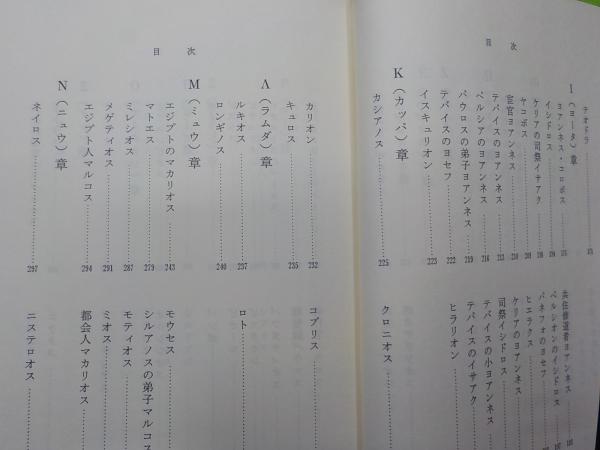 目次
テオドラ
I（ヨータ）章
ヨアンネス・コロボス
共住修道者ヨアンネス
イシドロス
ペルシオンのイシドロス
ケリアの司祭イサアク
パネフォのヨセフ
ヤコボス
ヒエラクス
宦官ヨアンネス
ケリアのヨアンネス
テバイスのヨアンネス
司祭イシドロス
ペルシアのヨアンネス
テバイスの小ヨアンネス
パウロスの弟子ヨアンネス
テバイスのイサアク
テバイスのヨセフ 222
ヒラリオン
イスキュリオン 223
K（カッパ）章
カシアノス 225
クロニオス
目次
カリオン 232
コプリス
キュロス 235
Λ（ラムダ）章
ルキオス 237
ロト
ロンギノス 240
M（ミュウ）章
エジプトのマカリオス 243
モウセス
マトエス 279
シルアノスの弟子マルコス
ミレシオス 287
モティオス
メゲティオス 291
ミオス
エジプト人マルコス 294
都会人マカリオス
N（ニュウ）章
ネイロス 297
ニステロオス